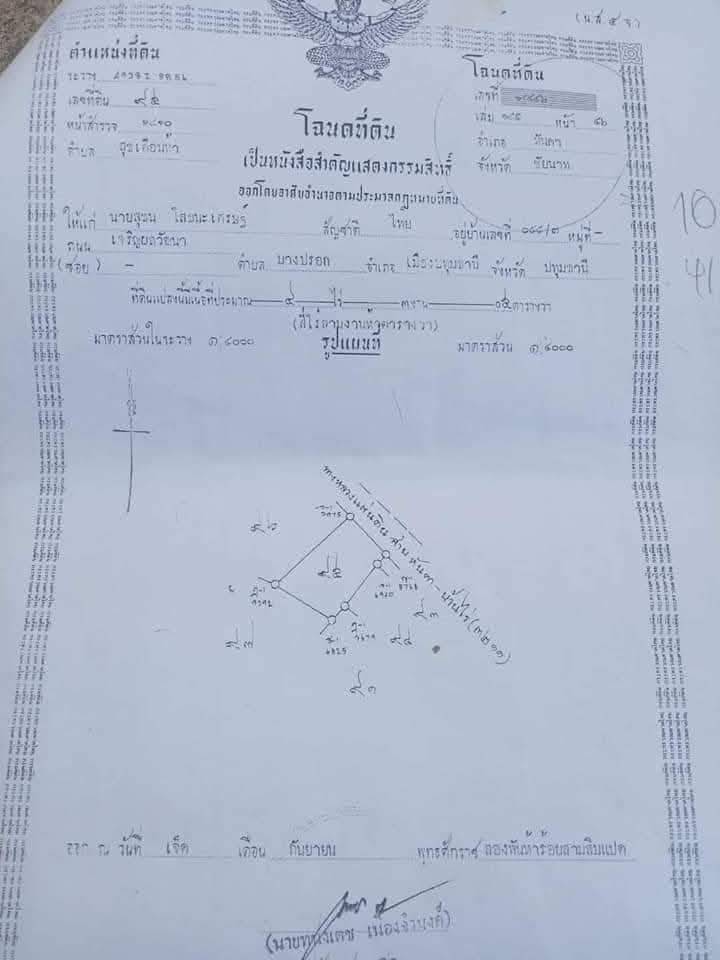 (น.ส. ๔ จ)
ตำแหน่งที่ดิน
ระวาง
เลขที่ดิน ๙๕
หน้าสำรวจ
ตำบล สุขเดือนห้า
โฉนดที่ดิน
เลขที่
เล่ม หน้า ๕๖
อำเภอ หันคา
จังหวัด ชัยนาท
โฉนดที่ดิน
เป็นหนังสือสำคัญแสดงกรรมสิทธิ์
ออกโดยอาศัยอำนาจตามประมวลกฎหมายที่ดิน
ให้แก่ นาย สัญชาติ ไทย อยู่บ้านเลขที่ หมู่ที่ -
ถนน เจริญผลวัฒนา
(ซอย) - ตำบล บางปรอก อำเภอ เมืองปทุมธานี จังหวัด ปทุมธานี
ที่ดินแปลงนี้มีเนื้อที่ประมาณ ๔ ไร่ ๓ งาน ๑๕ ตารางวา
(สี่ไร่สามงานสิบห้าตารางวา)
มาตราส่วนในระวาง ๑:๔๐๐๐ รูปแผนที่ มาตราส่วน ๑:๔๐๐๐
10
41
ทางหลวงแผ่นดิน สาย หันคา - บ้านไร่ (๓๒๑๑)
๙๖
๙๕
๙๓
๙๔
๙๗
๙๑
ออก ณ วันที่ เจ็ด เดือน กันยายน พุทธศักราช สองพันห้าร้อยสามสิบแปด